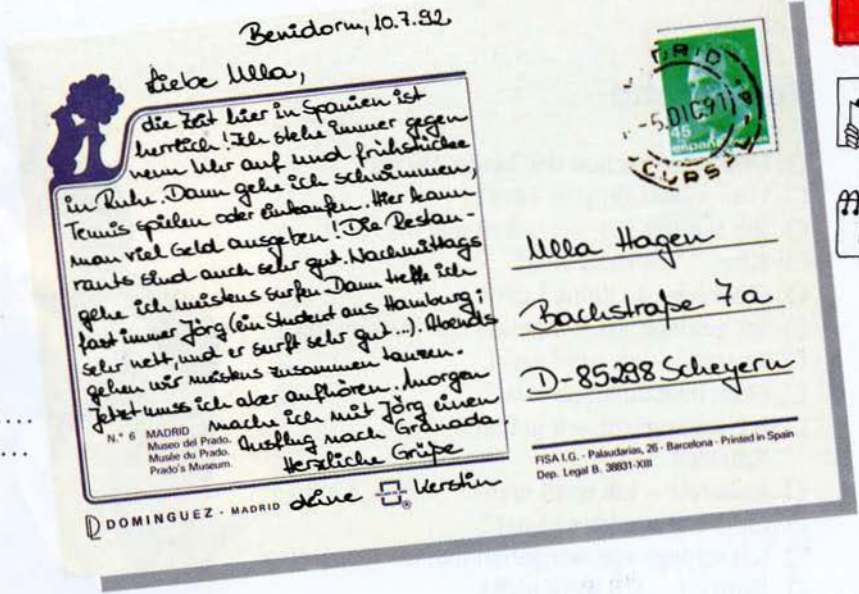 Benidorm, 10.7.92
Liebe Ulla,
die Zeit hier in Spanien ist
herrlich! Ich stehe immer gegen
neun Uhr auf und frühstücke
in Ruhe. Dann gehe ich schwimmen,
Tennis spielen oder einkaufen. Hier kann
man viel Geld ausgeben! Die Restau-
rants sind auch sehr gut. Nachmittags
gehe ich meistens surfen. Dann treffe ich
fast immer Jörg (ein Student aus Hamburg;
sehr nett, und er surft sehr gut...). Abends
gehen wir meistens zusammen tanzen.
Jetzt muss ich aber aufhören. Morgen
mache ich mit Jörg einen
Ausflug nach Granada
Herzliche Grüße
deine Kerstin
N.° 6 MADRID
Museo del Prado.
Musée du Prado.
Prado's Museum.
DOMINGUEZ - MADRID
DRID
-5.DIC91
CURS
45
españa
Ulla Hagen
Bachstraße 7a
D-85298 Scheyern
FISA I.G. - Palaudarias, 26 - Barcelona - Printed in Spain
Dep. Legal B. 38831-XIII